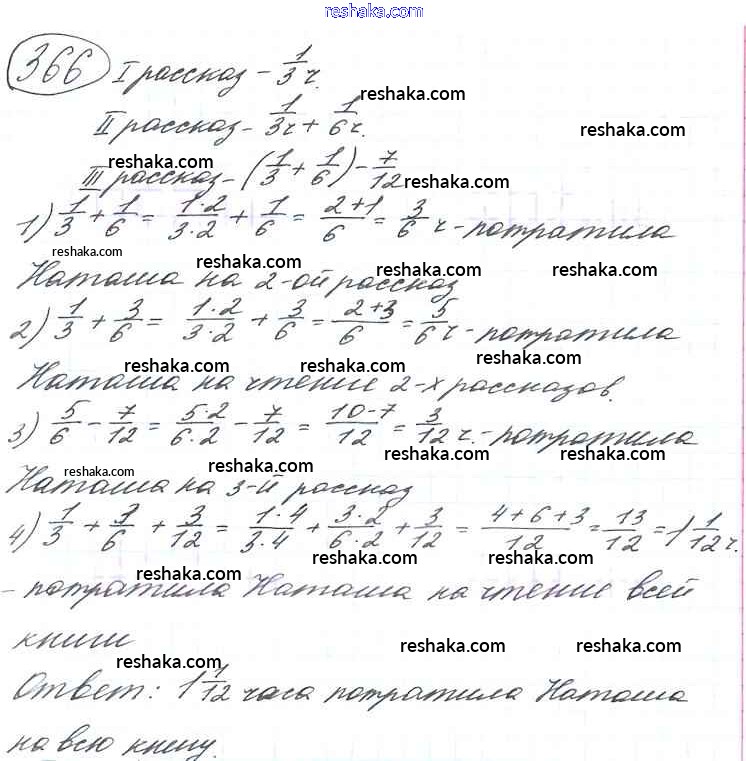 reshaka.com
366 I рассказ - 1/3 ч.
reshaka.com
II рассказ - 1/3 ч + 1/6 ч.
reshaka.com
reshaka.com
III рассказ - (1/3 + 1/6) - 7/12
reshaka.com
1) 1/3 + 1/6 = 1·2/3·2 + 1/6 = 2+1/6 = 3/6 ч - потратила
reshaka.com reshaka.com
Наташа на 2-ой рассказ
reshaka.com
2) 1/3 + 3/6 = 1·2/3·2 + 3/6 = 2+3/6 = 5/6 ч - потратила
reshaka.com reshaka.com reshaka.com
Наташа на чтение 2-х рассказов.
3) 5/6 - 7/12 = 5·2/6·2 - 7/12 = 10-7/12 = 3/12 ч. - потратила
reshaka.com reshaka.com reshaka.com
Наташа на 3-й рассказ
4) 1/3 + 3/6 + 3/12 = 1·4/3·4 + 3·2/6·2 + 3/12 = 4+6+3/12 = 13/12 = 1 1/12 ч.
reshaka.com reshaka.com reshaka.com
- потратила Наташа на чтение всей
книги
reshaka.com reshaka.com reshaka.com
Ответ: 1 1/12 часа потратила Наташа
на всю книгу.